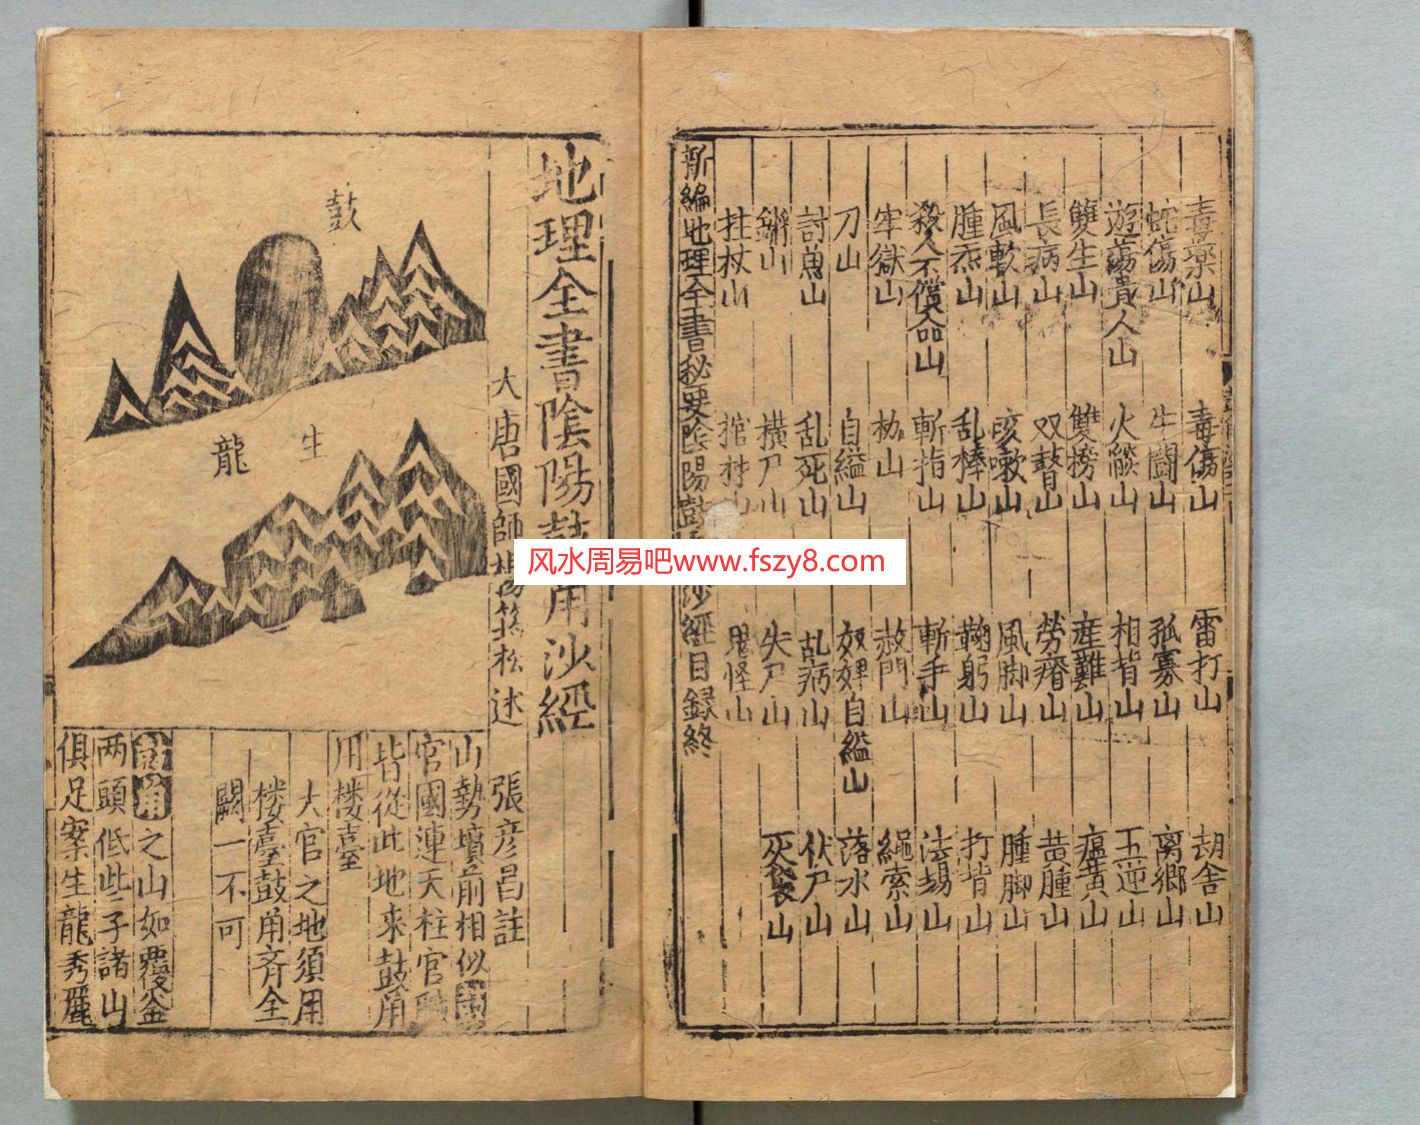 毒藥山 毒傷山 雷打山 刼舍山
蛇傷山 牛鬭山 孤寡山 离鄉山
遊蕩貴人山 火燄山 相背山 五逆山
雙生山 雙搒山 產難山 瘟黃山
長病山 双瞽山 勞瘠山 黃腫山
風軟山 咳嗽山 風脚山 腫脚山
腫炁山 乱棒山 鞠躬山 打背山
殺人不償命山 斬指山 斬手山 法場山
牢獄山 枷山 赦門山 繩索山
刀山 自縊山 奴婢自縊山 落水山
討魚山 乱死山 乱病山 伏尸山
鏘山 橫尸山 失尸山 灰袋山
拄杖山 棺材山 鬼怪山
新編地理全書秘要陰陽鼓沙經目錄終
地理全書陰陽鼓角沙經
大唐國師楊筠松述
張彥昌註
鼓
龍
生
山勢墳前相似
官國連天柱官
皆從此地来鼓角
用楼臺
大官之地須用
楼臺鼓角齊全
闕一不可
鼓角之山如覆釜
两頭低些子諸山
俱足案生龍秀麗
风水周易吧www.fszy8.com